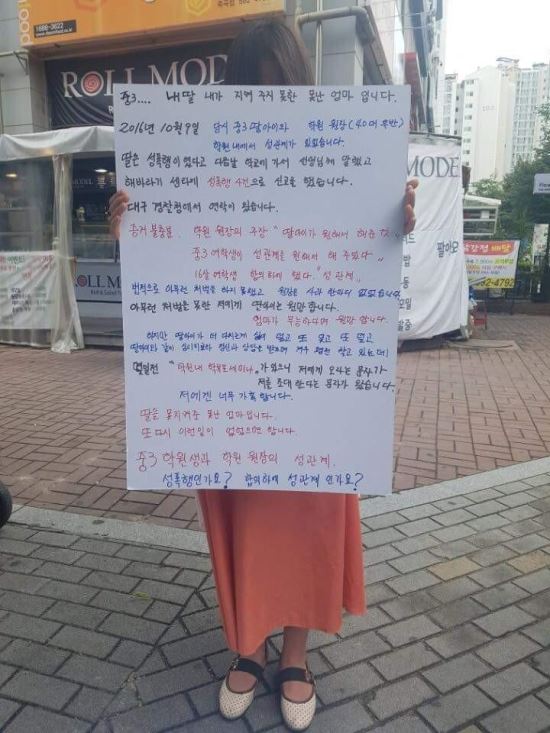 1686-3622
ROLL MODEL
중3.... 내딸 내가 지켜 주지 못한 못난 엄마 입니다.
2016년 10월 9일 당시 중3 딸아이와 학원 원장(40대 후반)
학원내에서 성관계가 있었습니다.
딸은 성폭행이 였다고 다음날 학교에 가서 선생님께 말했고
해바라기 센타에 성폭행 사건으로 신고를 했습니다.
대구 경찰청에서 연락이 왔습니다.
증거 불충분. 학원 원장의 주장 "딸아이가 원해서 해준 것"
중3 여학생이 성관계를 원해서 해 주었다"
16살 여학생 합의하에 했다. "성관계"
법적으로 아무런 처벌을 하지 못했고 원장은 사과 한마디 없었습니다
아무런 처벌을 못한 저에게 딸아이는 원망합니다.
엄마가 무능하다며 원망 합니다.
하지만 딸아이가 더 다치는게 싫어 잊고 또 잊고 또 잊고
딸아이와 같이 심리치료와 정신과 상담을 받으며 겨우 참고 있는데
몇일전 "학원내 학부모세미나" 가 있으니 저에게 오라는 문자가
저를 초대 한다는 문자가 왔습니다.
저에겐 너무 가혹 합니다.
딸을 못지켜준 못난 엄마입니다.
또 다시 이런일이 없었으면 합니다.
중3 학원생과 학원 원장의 성관계.
성폭행인가요? 합의하에 성관계 인가요?
ROLL MODEL
MODEL
배달
4792